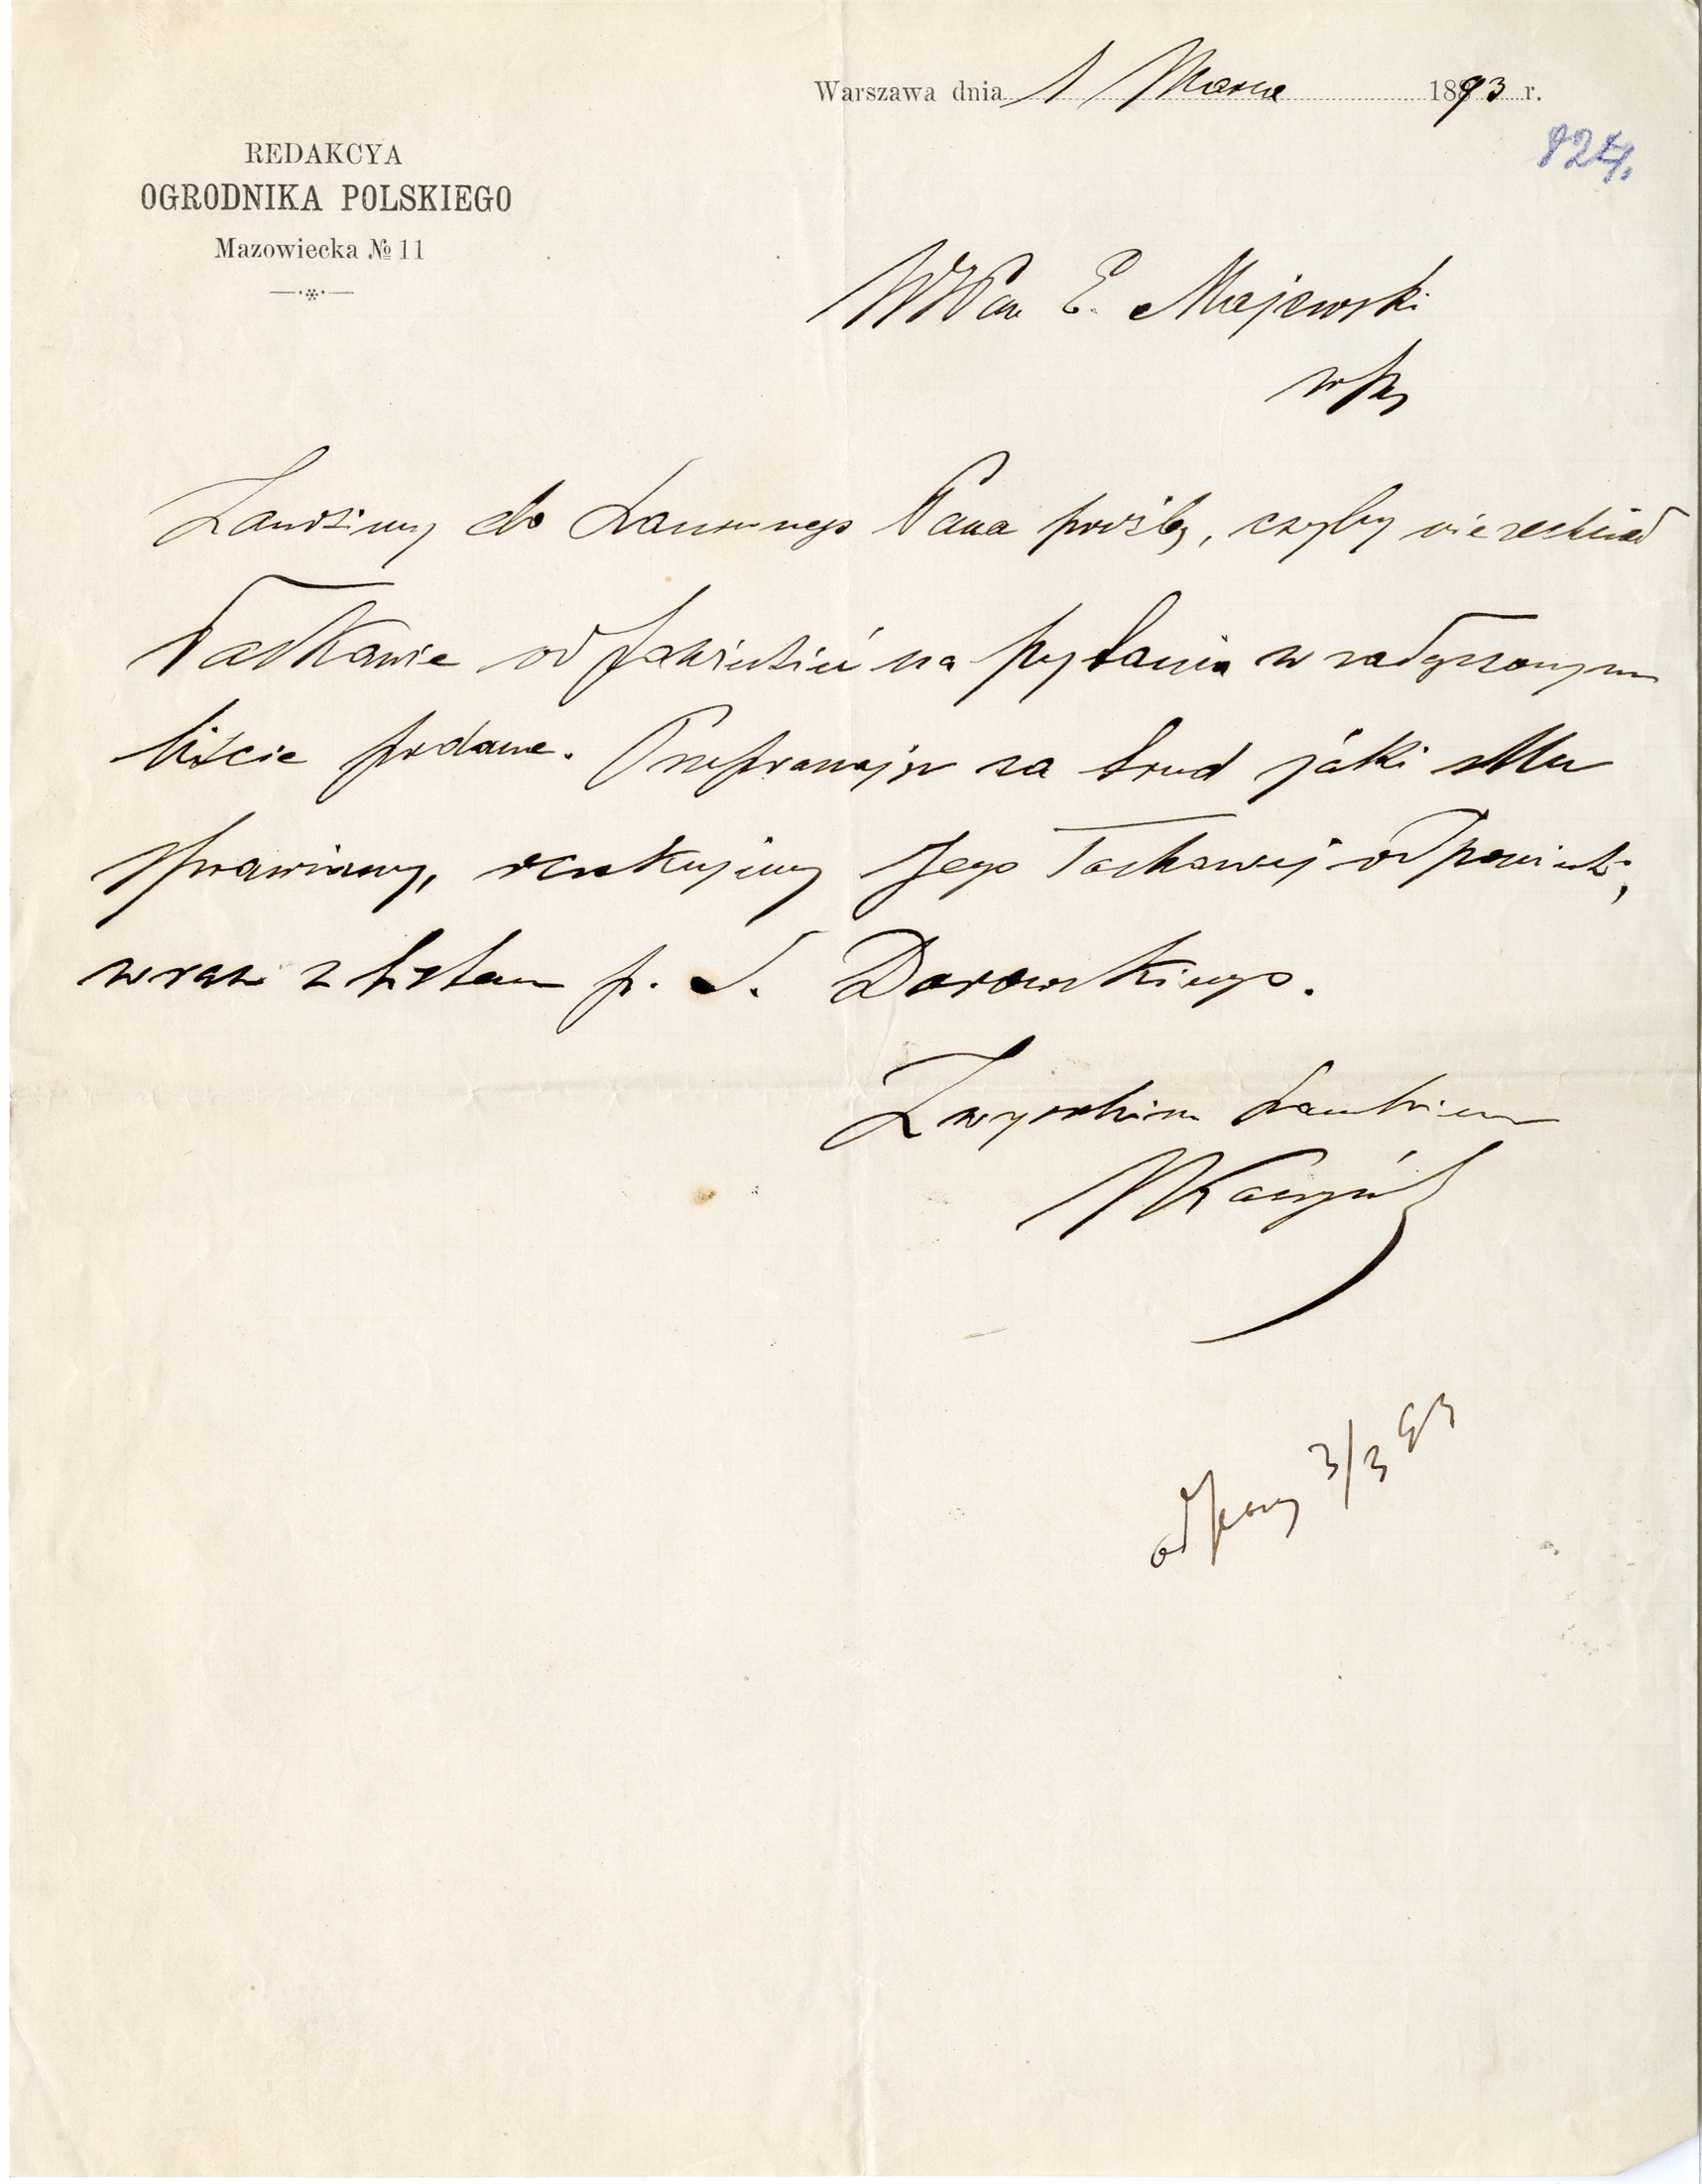 Warszawa dnia 1 Marca 1893 r.
824.
REDAKCYA
OGRODNIKA POLSKIEGO
Mazowiecka № 11
WPan E. Majewski
w/m
Zanosimy do Szanownego Pana prośbę, czyby nie zechciał
łaskawie odpowiedzieć na pytania w załączonym
liście podane. Przepraszając za trud jaki Mu
sprawiamy, oczekujemy Jego łaskawej odpowiedzi,
wraz z listem p. S. Darowskiego.
Z wysokim szacunkiem
odpow 3/3 93